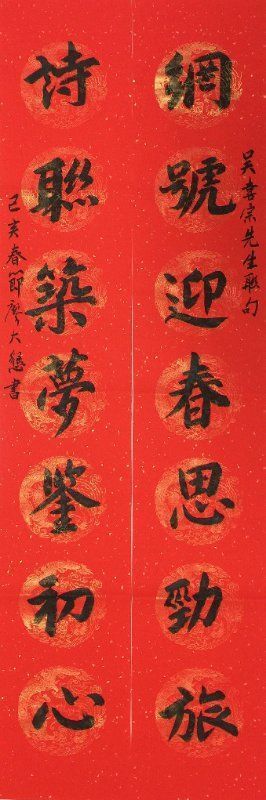 吴喜宗先生聯句
網號迎春思勁旅
詩聯築夢鑒初心
己亥春節廖大書